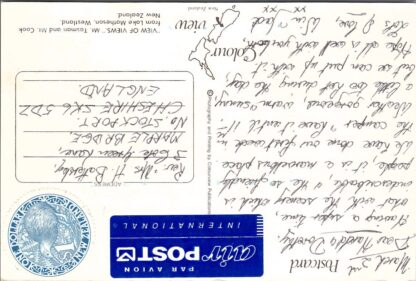 Postcard
March 2nd
Dear Harold & Dorothy,
Having a super time,
with the scenery which is
unbelievable, & so friendly
people, it is a marvellous place.
We have done our first week in
the camper & have it until 17th.
Weather warm & sunny,
a little too hot during the day
but can put up with it.
Hope all is well with you both,
Lots of love,
Win & Jack
xx xx
PAR AVION
air POST
INTERNATIONAL
NEW ZEALAND
ONE DOLLAR
ADDRESS
Rev. & Mrs H
Green Lane,
MARPLE BRIDGE,
Nr STOCKPORT.
CHESHIRE SK6 5DZ
ENGLAND
Colour
view
New Zealand
"VIEW OF VIEWS", Mts. Tasman and Mt. Cook
from Lake Matheson, Westland,
New Zealand